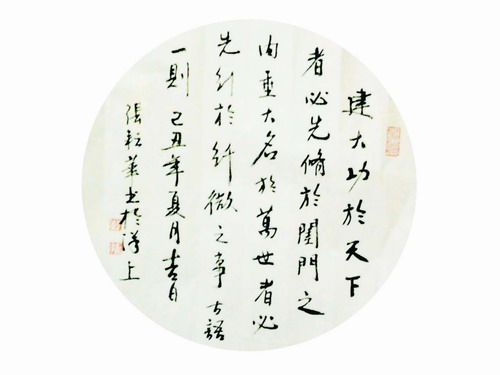 建大功於天下
者必先脩於閨門之
内垂大名於萬世者必
先行於纤微之事古語
一則 己丑年夏月吉日
張耘華书於漢上